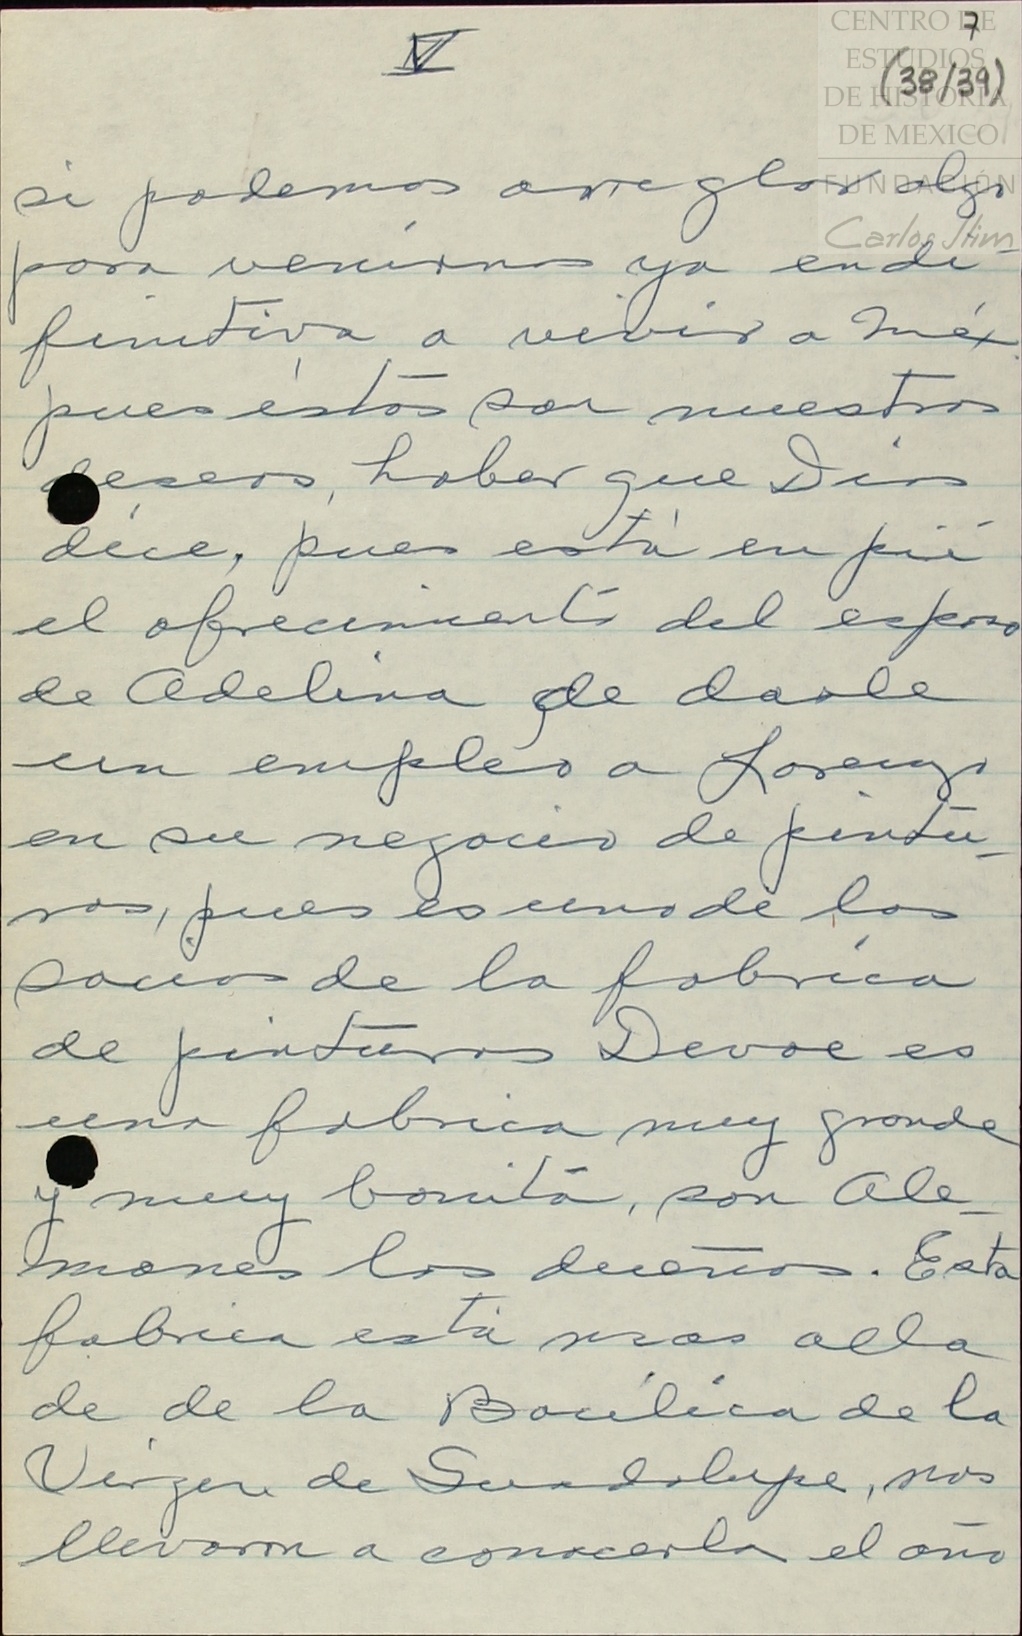 CENTRO DE
ESTUDIOS
DE HISTORIA
DE MEXICO
FUNDACIÓN
Carlos Slim
7
(38/39)
V
si podemos arreglar algo
para venirnos ya endi-
finitiva a vivir a Méx.
pues éstos son nuestros
deseos, haber que Dios
dice, pues está en pié
el ofrecimiento del esposo
de Adelina de darle
un empleo a Lorenzo
en su negocio de pintu-
ras, pues es uno de los
socios de la fabrica
de pinturas Devoe es
una fabrica muy grande
y muy bonita, son Ale-
manes los dueños. Esta
fabrica está mas alla
de de la Bacilica de la
Virgen de Guadalupe, nos
llevaron a conocerla el año